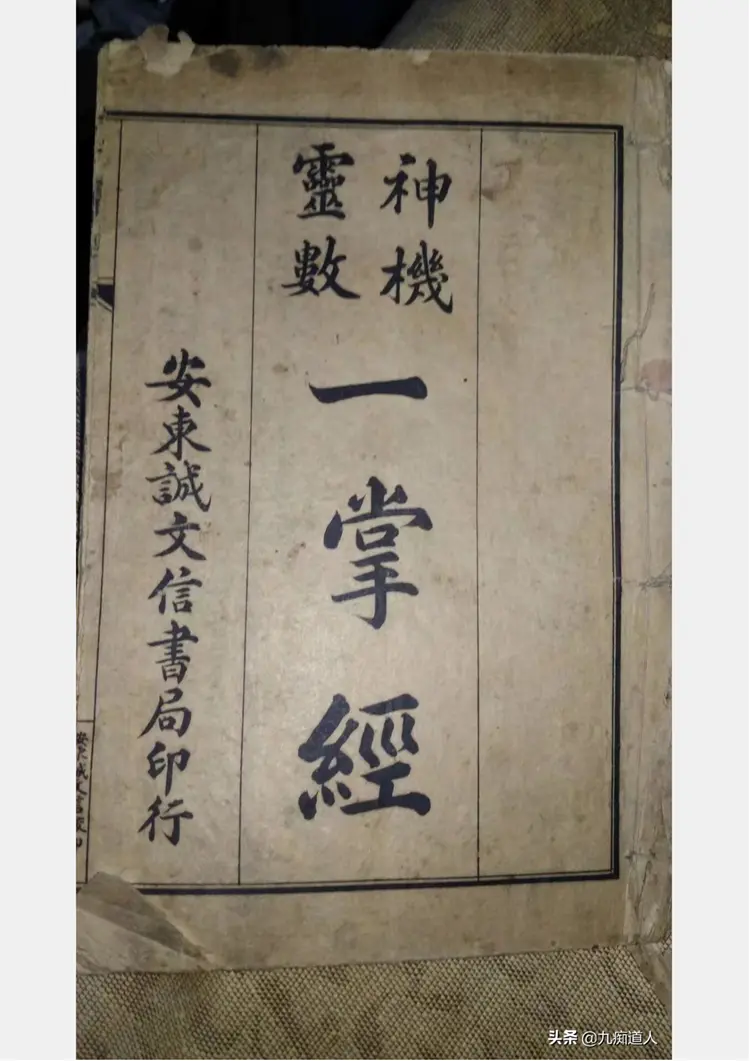 神機
靈數
一掌經
安東誠文信書局印行
头条 @九痴道人